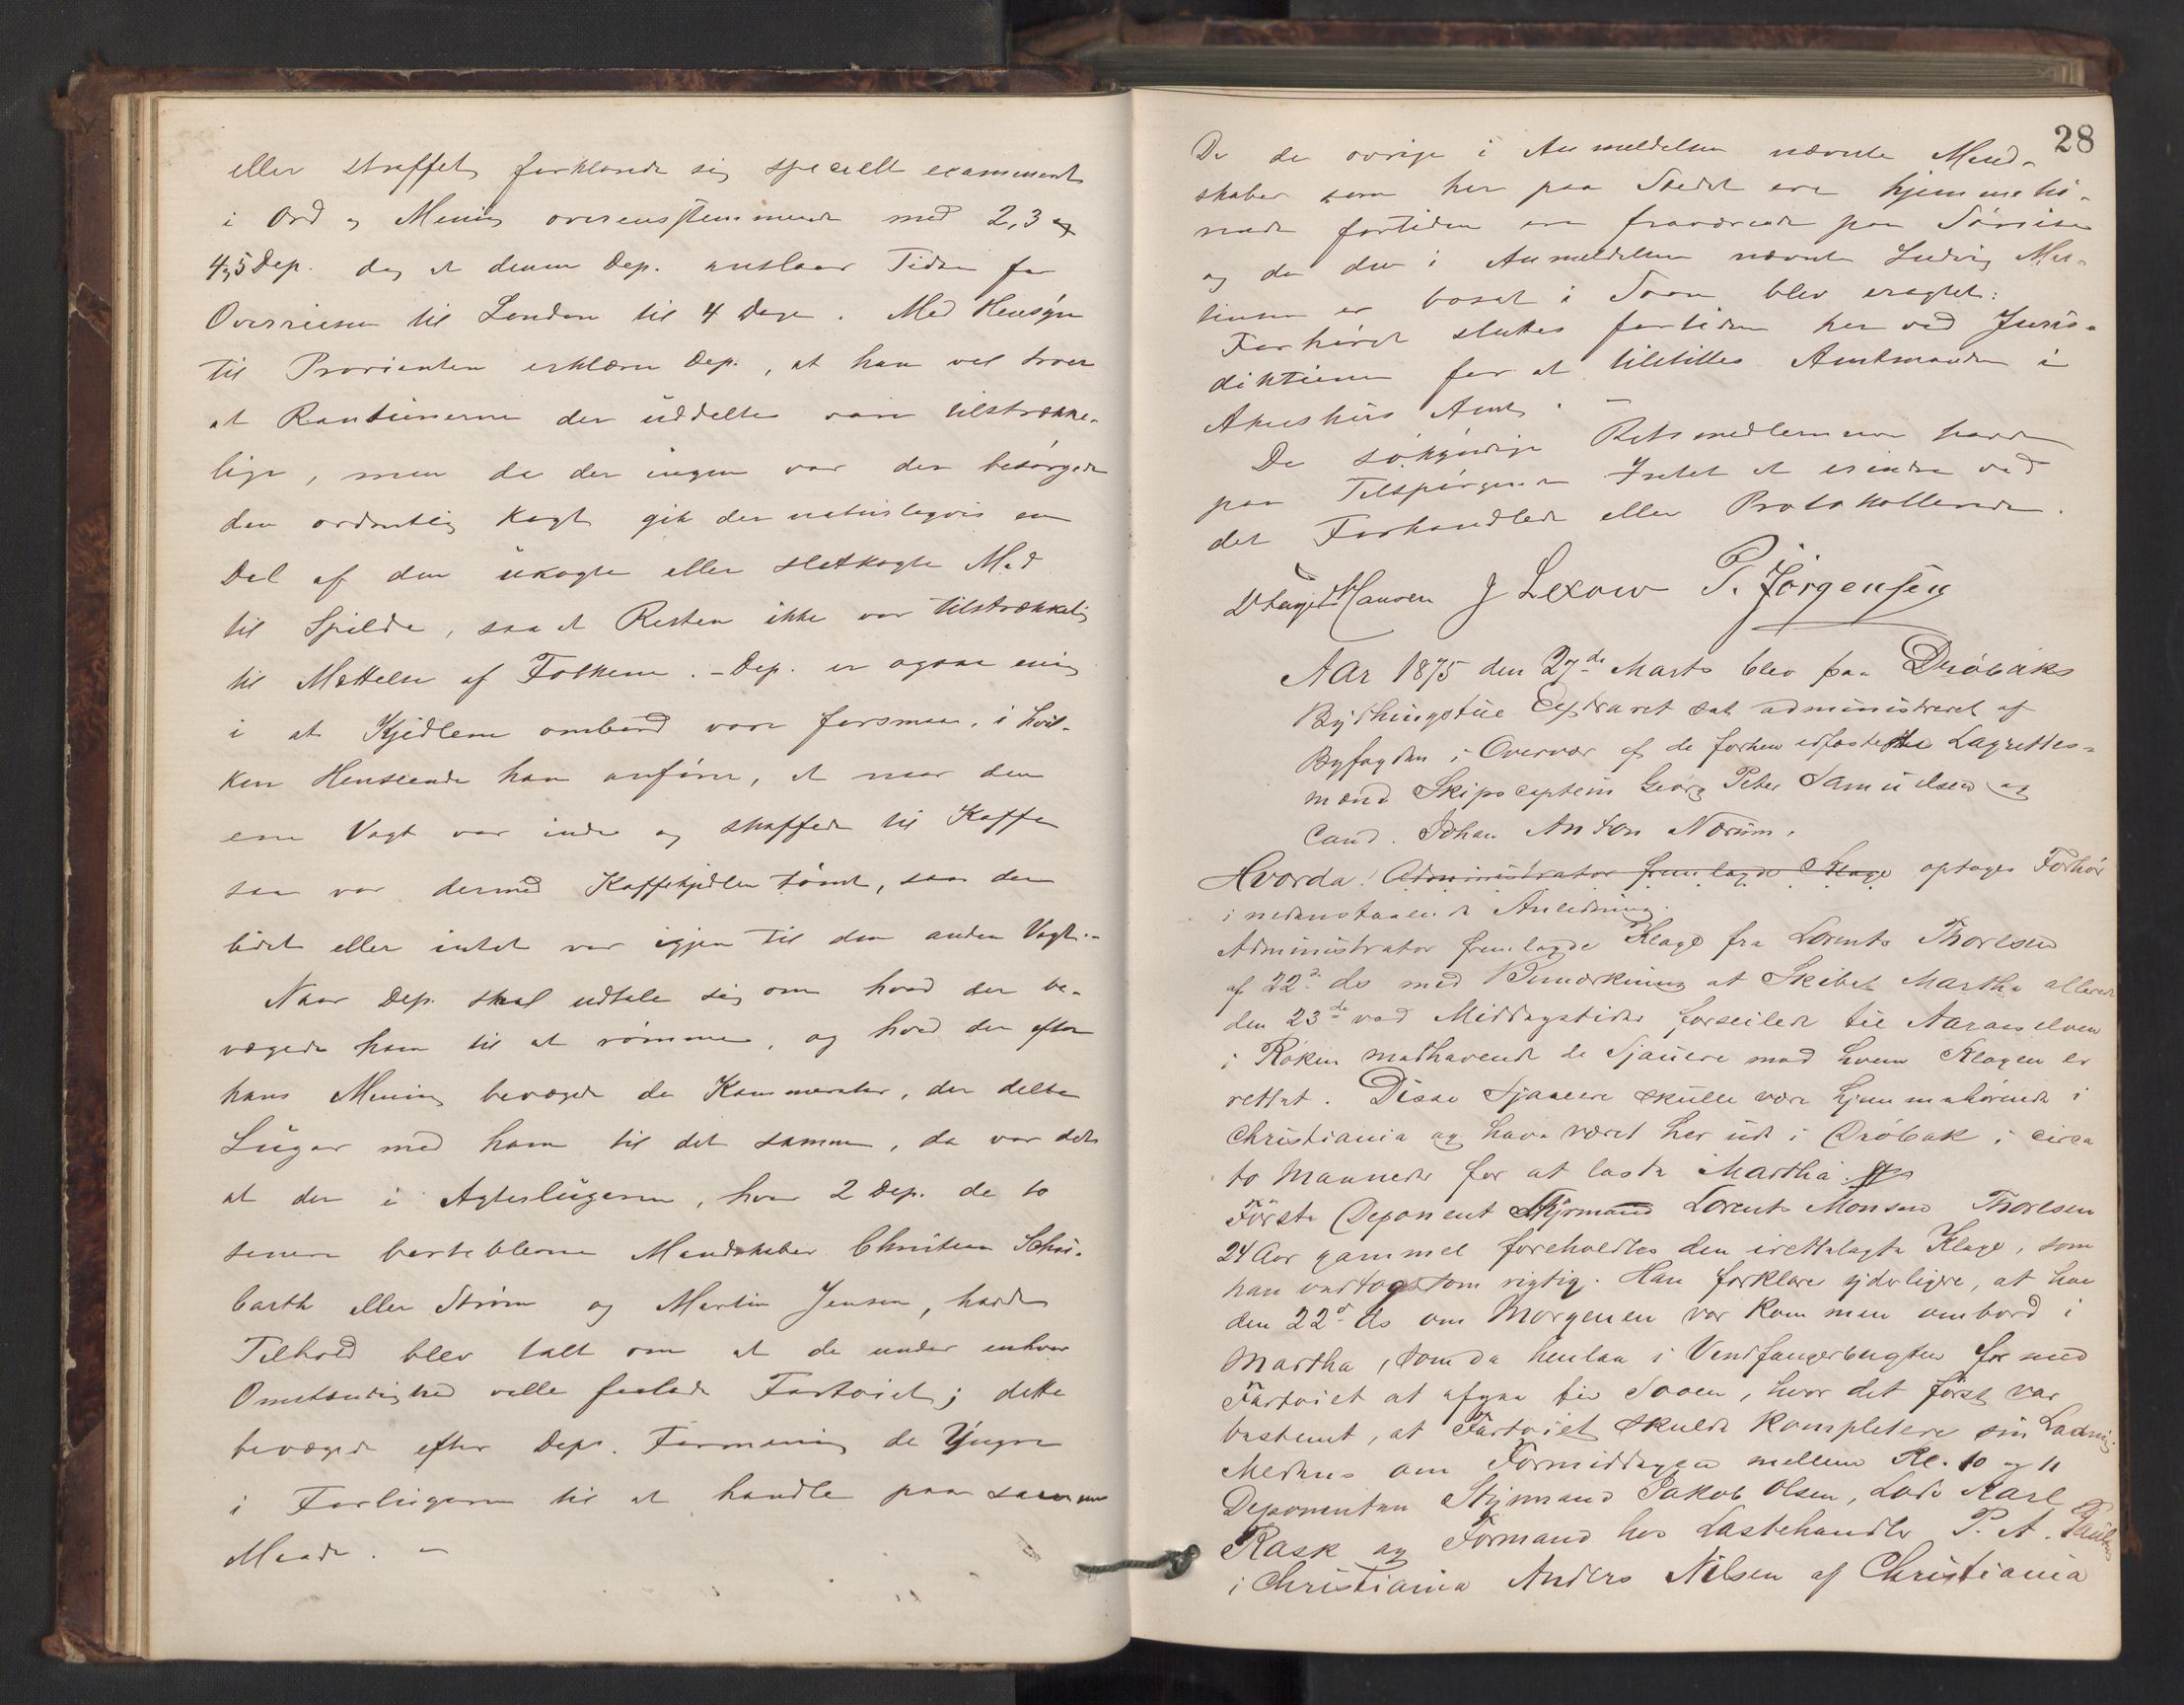 eller straffet, forklarede sig specielt examineret
i Ord og Mening overensstemmende med 2, 3 og
4, 5 Dep. dog at denne Dep. anslaar Tiden for
Overreisen til London til 4 Dage. Med Hensyn
til Provianten erklærer Dep., at han vel troer
at Rantionerne der uddeltes vare tilstrække-
lige, men da der ingen var der besørgede
den ordentlig kogt gik der naturligvis en
Del af den ukogte eller sletkogte Mad
til Spilde, saa at Resten ikke var tilstrækkelig
til Mættelse af Folkene. - Dep. er ogsaa enig
i at Kjedlerne ombord vare forsmaa, i hvil-
ken Henseende han anfører, at naar den
ene Vagt var inde og skaffede til Kaffe
saa var dermed Kaffekjedlen tømt, saa der
lidet eller intet var igjen til den anden Vagt.-
Naar Dep. skal udtale sig om hvad der be-
vægede ham til at rømme, og hvad der efter
hans Mening bevægede de Kammerater, der delte
Lugar med ham til det samme, da var det
at der i Agterlugaren, hvor 2 Dep. de to
senere borteblevne Mandskaber Christian Schu-
barth eller Strøm og Martin Jensen, havde
Tilhold blev talt om at de under enhver
Omstændighed vilde forlade Fartøiet; dette
bevægede efter Deps. Formening de Yngre
i Forlugaren til at handle paa samme
Maade. -
28
Da de øvrige i Anmeldelsen nævnte Mand-
skaber som her paa Stedet ere hjemmehø-
rende fortiden ere fraværende paa Søreise
og da den i Anmeldelsen nævnte Ludvig Mar-
tinsen er bosat i Soon blev eragtet:
Forhøret sluttes fortiden her ved Juris-
diktionen for at tilstilles Amtmanden i
Akershus Amt. -
De søkyndige Retsmedlemmer havde
paa Tilspørgende Intet at erindre ved
det Forhandlede eller Protokollerede.
Hansen J Lexow P. Jörgensen
Aar 1875 den 27de Marts blev paa Drøbaks
Bythingstue Extraret sat administreret af
Byfogden i Overvær af de forhen edfæstede Lagrettes-
mænd Skipscaptein Georg Peter Samuelsen og
Cand. Johan Anton Nærum.
Hvorda! Administrator fremlagde Klage optages Forhør
i nedenstaaende Anledning.
Administrator fremlagde Klage fra Lorents Thoresen
af 22d ds med Bemærkning at Skibet Martha allerede
den 23de ved Middagstider forseilede til Aaroselven
i Røken medhavende de Sjauere mod hvem Klagen er
rettet. Disse Sjauere skulle være hjemmehørende i
Christiania og have været her ude i Drøbak i circa
to Maaneder for at laste Martha.
Første Deponent Styrmand Lorents Monsen Thoresen
24 Aar gammel foreholdtes den irettelagte Klage, som
han vedtog som rigtig. Han forklarer yderligere, at han
den 22d ds om Morgenen var kommen ombord i
Martha, som da henlaa i Vindfangerbugten for med
Fartøiet at afgaa til Sooen, hvor det først var
bestemt, at Fartøiet skulde kompletere sin Ladning
Medens om Formiddagen mellem Kl. 10 og 11
Deponenten Styrmand Jakob Olsen, Lods Karl
Rask og Formand hos Lastehandler P. A.
i Christiania Anders Nilsen af Christiania